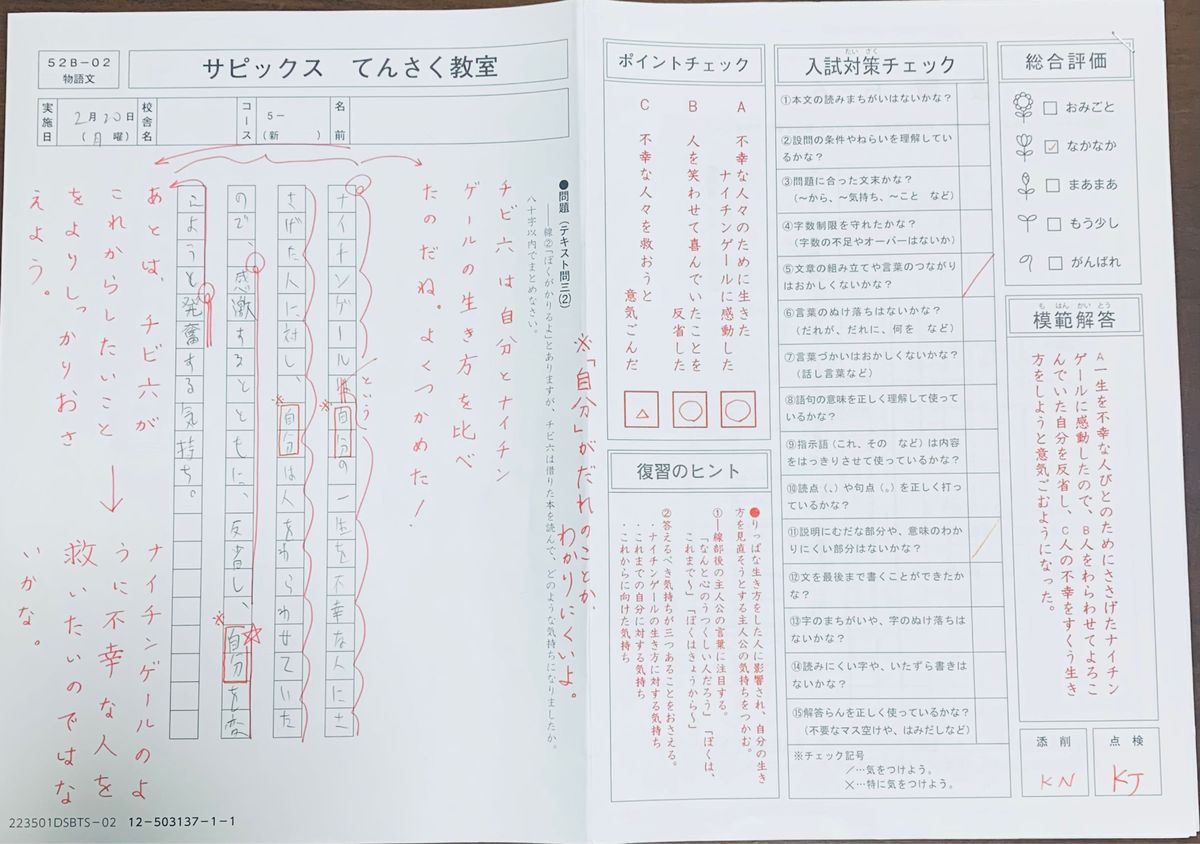 総合評価
おみごと
✓ なかなか
まあまあ
もう少し
がんばれ
模範解答
も はん かい とう
A一生を不幸な人びとのためにささげたナイチン
ゲールに感動したので、B人をわらわせてよろこ
んでいた自分を反省し、C人の不幸をすくう生き
方をしようと意気ごむようになった。
点検
KJ
添削
KN
入試対策チェック
たい さく
①本文の読みまちがいはないかな?
②設問の条件やねらいを理解してい
るかな?
③問題に合った文末かな?
(〜から、〜気持ち、〜こと など)
④字数制限を守れたかな?
(字数の不足やオーバーはないか)
⑤文章の組み立てや言葉のつながり
はおかしくないかな?
⑥言葉のぬけ落ちはないかな?
(だれが、だれに、何を など)
⑦言葉づかいはおかしくないかな?
(話し言葉など)
⑧語句の意味を正しく理解して使って
いるかな?
⑨指示語(これ、その など)は内容
をはっきりさせて使っているかな?
⑩読点(、)や句点(。)を正しく打っ
ているかな?
⑪説明にむだな部分や、意味のわか
りにくい部分はないかな?
⑫文を最後まで書くことができたか
な?
⑬字のまちがいや、字のぬけ落ちは
ないかな?
⑭読みにくい字や、いたずら書きは
ないかな?
⑮解答らんを正しく使っているかな?
(不要なマス空けや、はみだしなど)
※チェック記号
/…気をつけよう。
×…特に気をつけよう。
ポイントチェック
A 不幸な人々のために生きた
ナイチンゲールに感動した
○
B 人を笑わせて喜んでいたことを
反省した
○
C 不幸な人々を救おうと
意気ごんだ
△
復習のヒント
●りっぱな生き方をした人に影響され、自分の生き
方を見直そうとする主人公の気持ちをつかむ。
①―線部後の主人公の言葉に注目する。
「なんと心のうつくしい人だろう」「ぼくは、
これまで〜」「ぼくはきょうから〜」
②答えるべき気持ちが三つあることをおさえる。
・ナイチンゲールの生き方に対する気持ち
・これまでの自分に対する気持ち
・これからに向けた気持ち
52B-02
物語文
サピックス てんさく教室
名前
コース
5-
(新 )
校舎名
実施日
2月20日
(月 曜)
※「自分」がだれのことか、
わかりにくいよ。
●問題(テキスト問三(2))
―線②「ぼくがかりるよ」とありますが、チビ六は借りた本を読んで、どのような気持ちになりましたか。
八十字以内でまとめなさい。
チビ六は自分とナイチン
ゲールの生き方を比べ
たのだね。よくつかめた!
という
ナイチンゲール 自分の一生を不幸な人にさ
さげた人に対し、自分は人をわらわせていた
ので、感激するとともに、反省し、自分を変
えようと発奮する気持ち。
あとは、チビ六が
これからしたいこと
をよりしっかりおさ
えよう。
→
ナイチンゲールのよ
うに不幸な人を
救いたいのではな
いかな。
223501DSBTS-02 12-503137-1-1